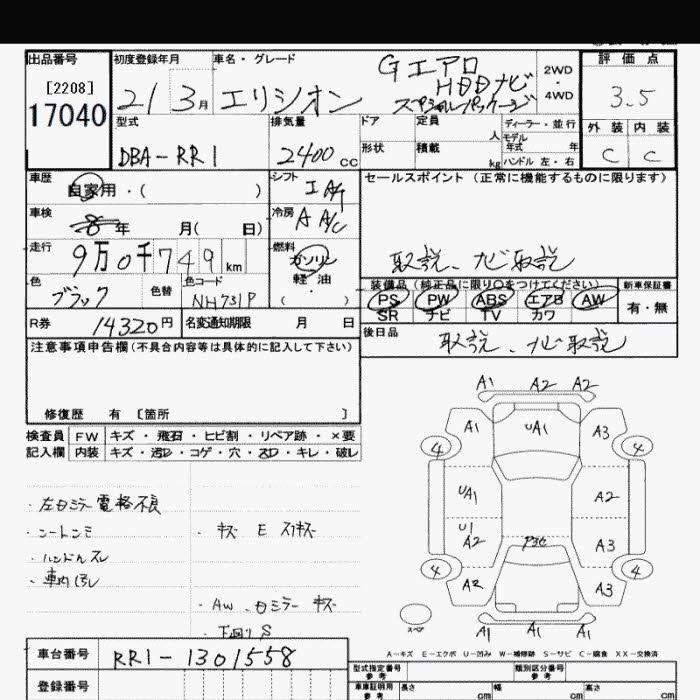 出品番号
[2208]
17040
初度登録年月
21 3月
車名・グレード
エリシオン
Gエアロ
HDDナビ
スペシャルパッケージ
2WD
4WD
評価点
3.5
外装 内装
C C
型式
DBA-RR1
排気量
2400cc
ドア
形状
定員
人
積載
kg
ディーラー・並行
モデル
年式 年
ハンドル 左・右
車歴
自家用・( )
シフト
I A/T
セールスポイント (正常に機能するものに限ります)
取説、ナビ取説
車検
8年 月( 日)
冷房
A A/C
走行
9万0千749km
燃料
ガソリン
軽油
( )
色
ブラック
色替
色コード
NH731P
装備品(純正品に限り○をつけてください)
PS PW ABS エアB AW
SR ナビ TV カワ
新車保証書
有・無
R券
14320円
名変通知期限 月 日
後日品
取説、ナビ取説
注意事項申告欄(不具合内容等は具体的に記入して下さい)
修復歴 有 [箇所 ]
検査員
記入欄
FW キズ・飛石・ヒビ割・リペア跡・×要
内装 キズ・汚レ・コゲ・穴・スレ・キレ・破レ
・左ミラー電格不良
・シートシミ
・ハンドルスレ
・車内汚レ
・キズ E スリキズ
・AW、ミラーキズ
・下回りS
A1 A2 A2
A1 UA1 A3
4 4
UA1 A2
U1
A2 A3
4 4
A2 A3
スペア
A1 A1 A1
A-キズ E-エクボ U-凹み W-補修跡 S-サビ C-腐食 XX-交換済
車台番号
RR1-1301558
登録番号
型式指定番号
参考
類別区分番号
参考
車庫証明用
参考
長さ cm
幅 cm
高さ cm